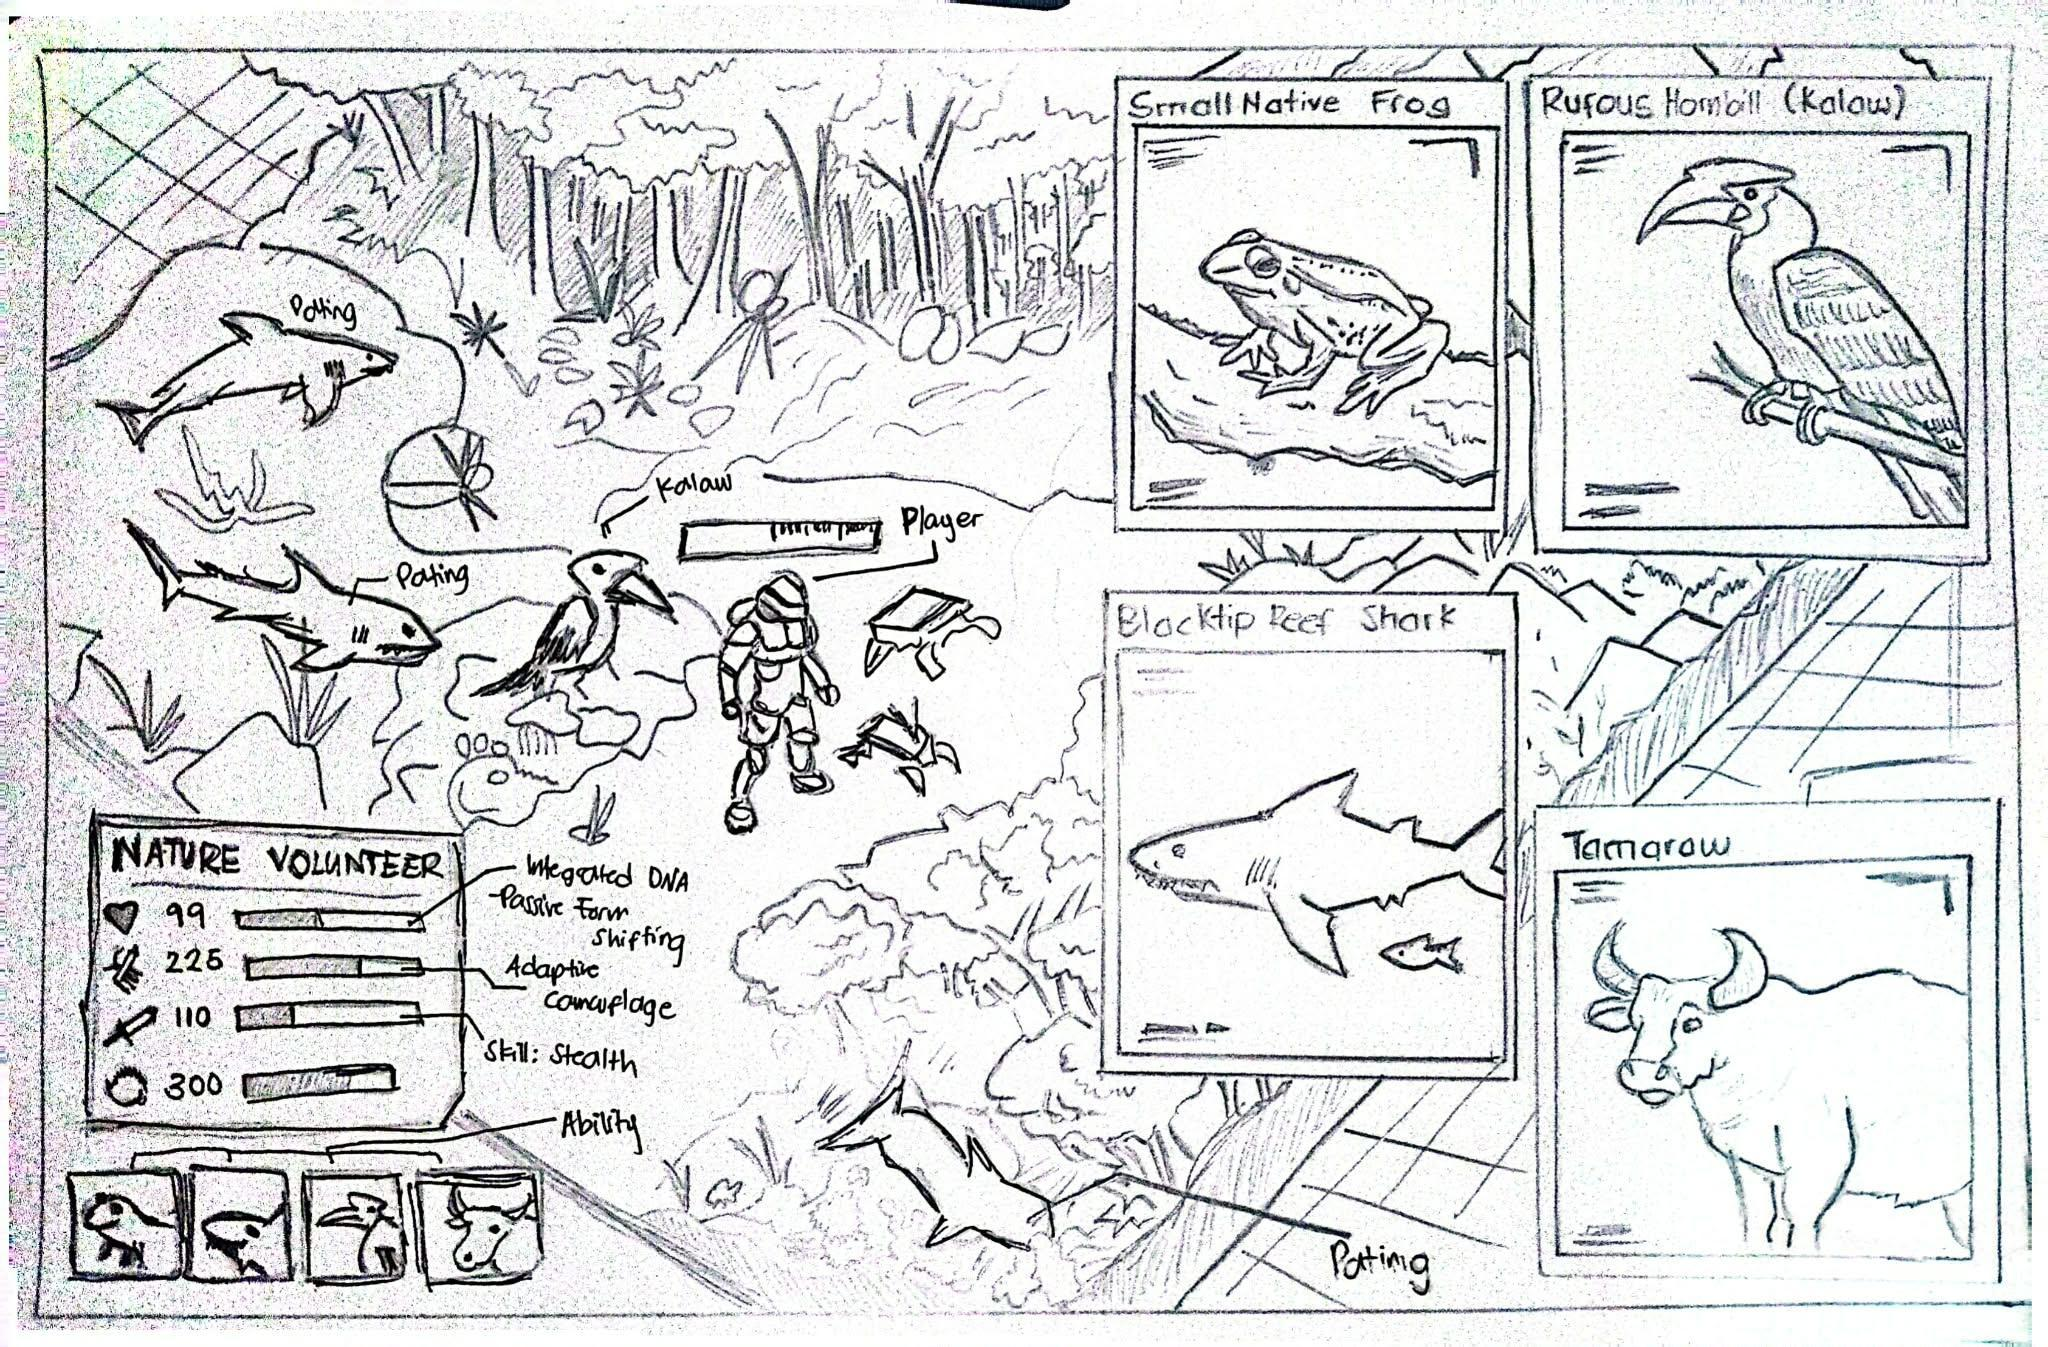 Small Native Frog
Rufous Hornbill (Kalaw)
Pating
Kalaw
Player
Pating
Blacktip Reef Shark
Tamaraw
NATURE VOLUNTEER
99
225
110
300
Integrated DNA
-Passive Form
Shifting
Adaptive
Camouflage
Skill: Stealth
Ability
Pating